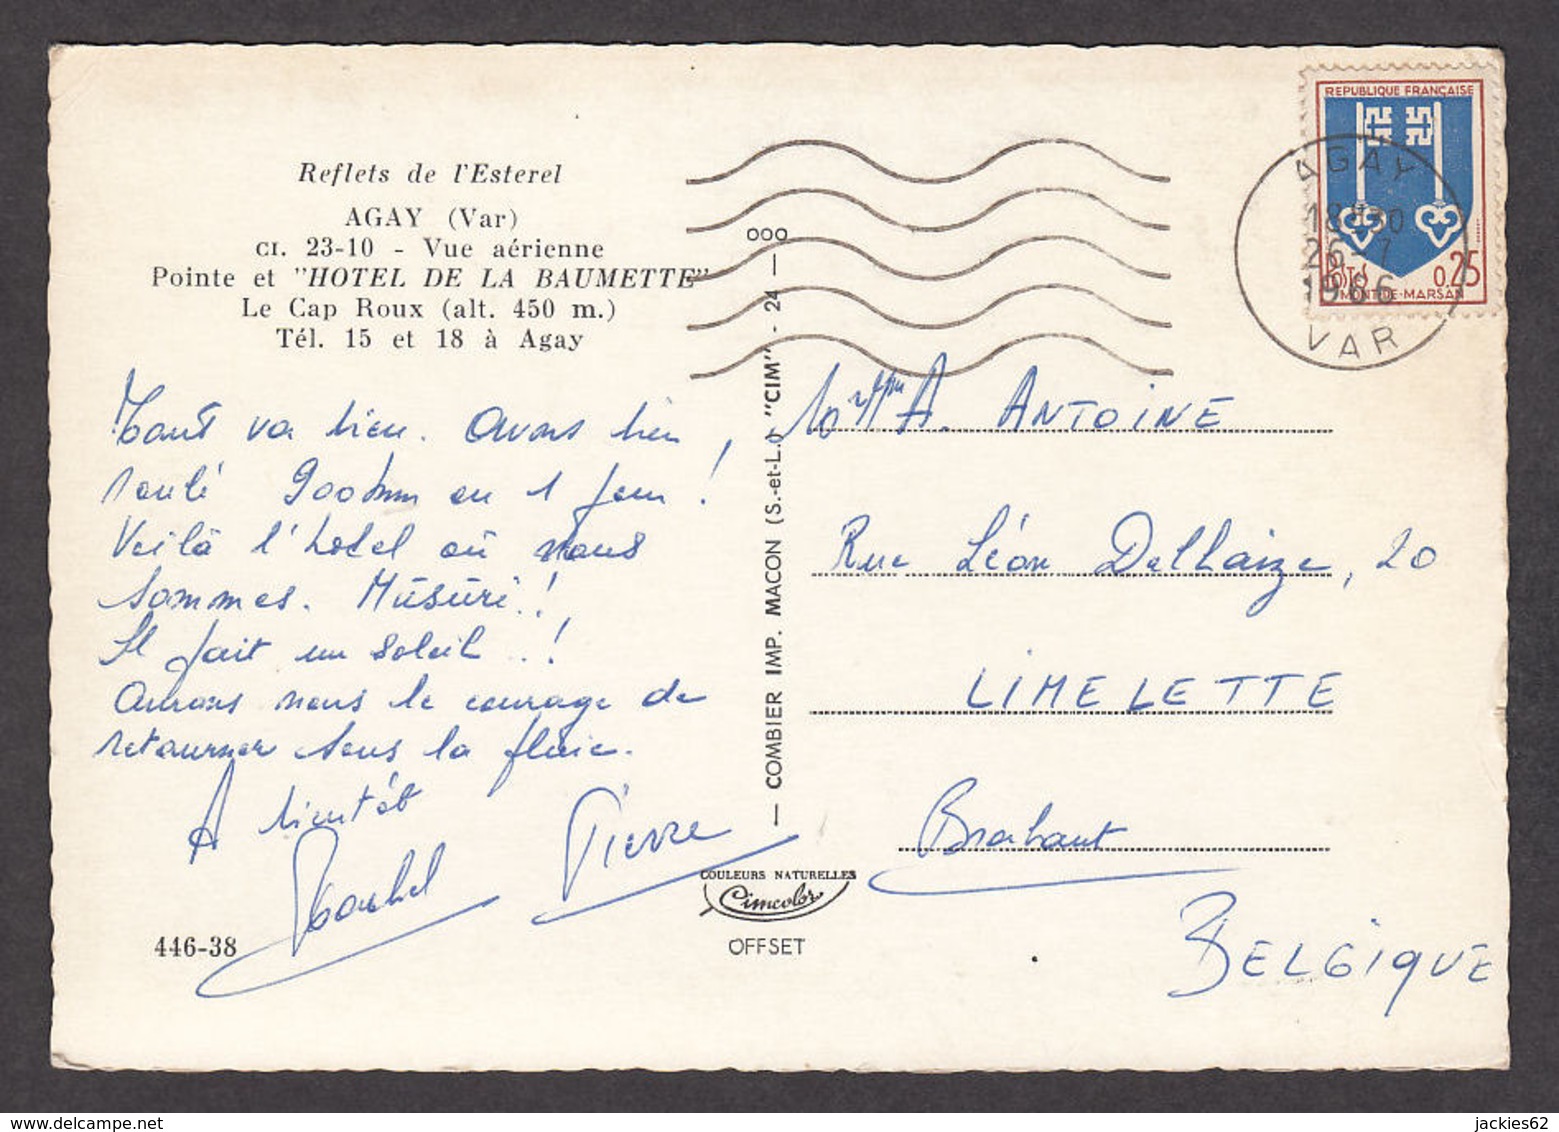 Reflets de l'Esterel
AGAY (Var)
CI. 23-10 - Vue aérienne
Pointe et "HOTEL DE LA BAUMETTE"
Le Cap Roux (alt. 450 m.)
Tél. 15 et 18 à Agay
Tout va bien. Avons bien
roulé 900 km en 1 jour !
Voilà l'hotel où nous
sommes.
Il fait un soleil..!
Aurons nous le courage de
retourner sous la pluie.
A bientôt
Pierre
446-38
— COMBIER IMP. MACON (S.-et-L.) "CIM" - 24 —
000
COULEURS NATURELLES
Cimcolor
OFFSET
REPUBLIQUE FRANÇAISE
POSTES 0,25
MONT-DE-MARSAN
AGAY
18H30
26-7
1966
VAR
A. ANTOINE
Rue Léon Dellaize, 20
LIMELETTE
Brabant
BELGIQUE
jackies62